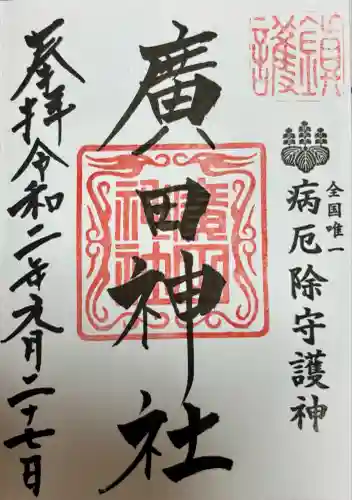 鎮護
全国唯一
病厄除守護神
廣田神社
廣田神社
奉拝令和二年六月二十七日